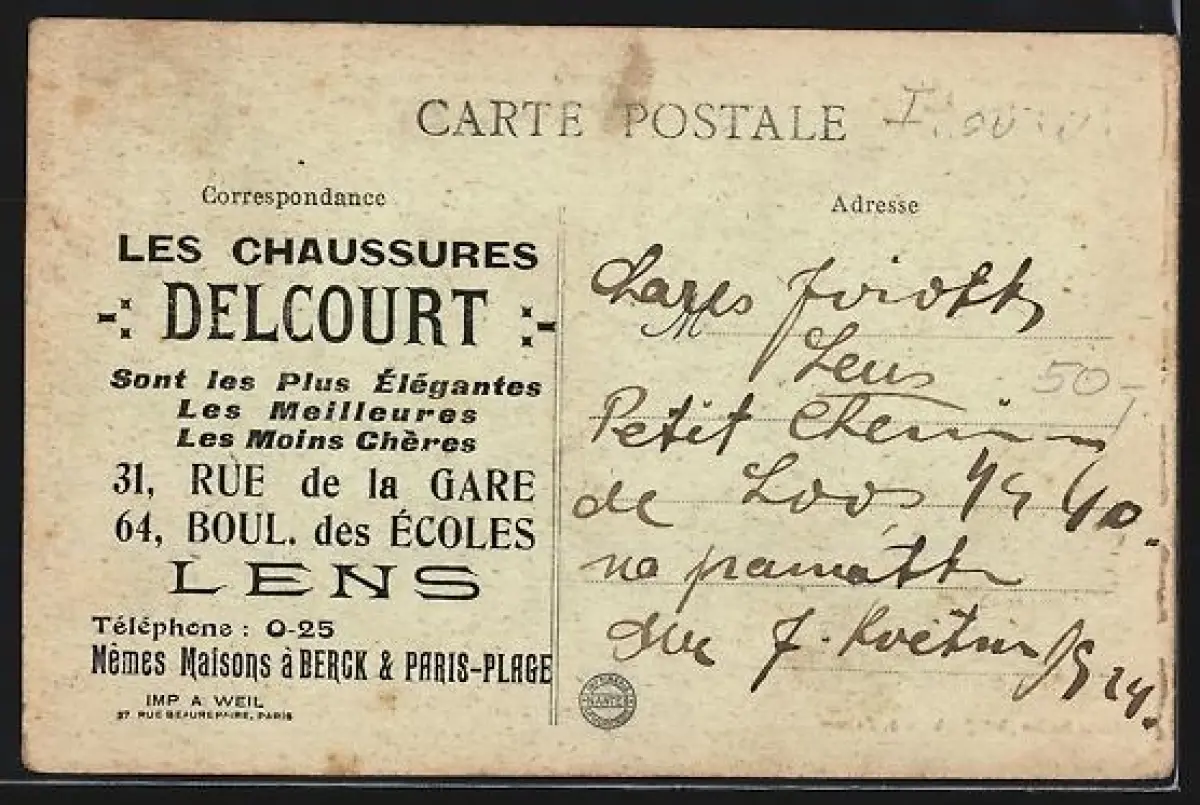 CARTE POSTALE
Correspondance
LES CHAUSSURES
-: DELCOURT :-
Sont les Plus Élégantes
Les Meilleures
Les Moins Chères
31, RUE de la GARE
64, BOUL. des ÉCOLES
LENS
Téléphone : 0-25
Mêmes Maisons à BERCK & PARIS-PLAGE
IMP A WEIL
37 RUE BEAUREPAIRE, PARIS
Adresse
M
Lens
50-
Petit Chemin
de Loos
na
J.
NANTES